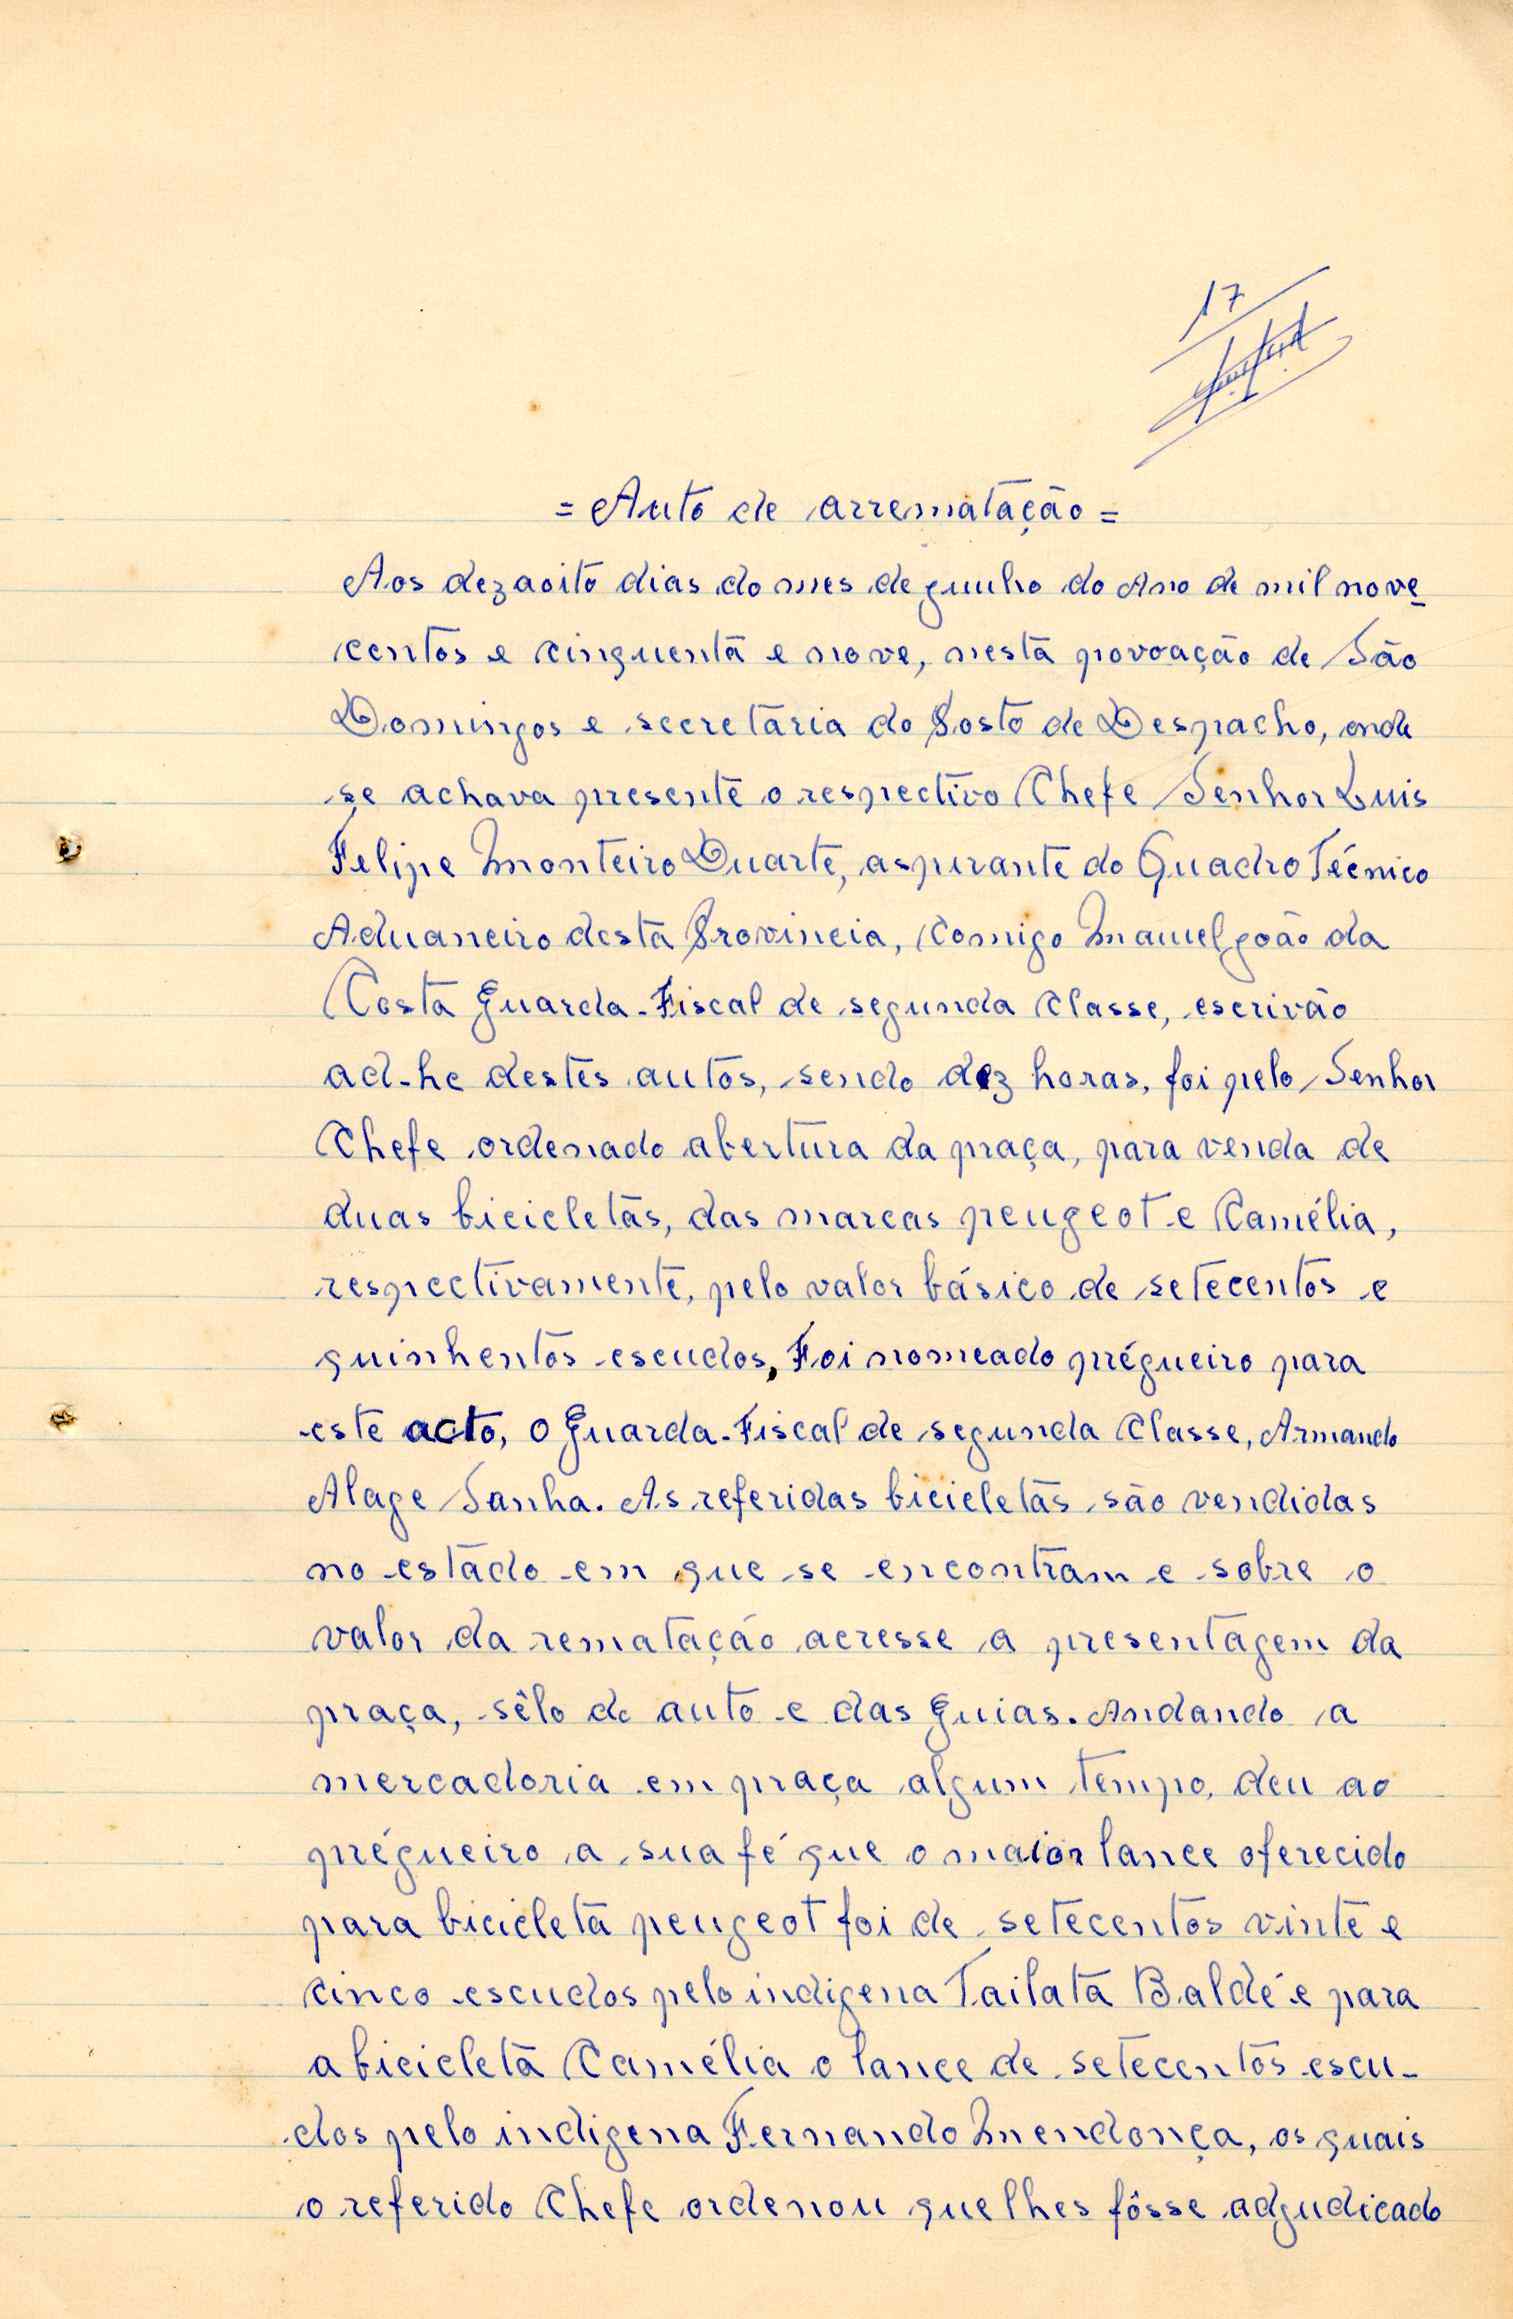 17
= Auto de arrematação =
Aos dezaoito dias do mes de junho do Ano de mil nove
centos e cinquenta e nove, nesta povoação de São
Domingos e secretaria do Posto de Despacho, onde
se achava presente o respectivo Chefe Senhor Luis
Felipe Monteiro Duarte, aspirante do Quadro Técnico
Aduaneiro desta Provincia, Comigo Manuel João da
Costa Guarda-Fiscal de segunda Classe, escrivão
ad-hc destes autos, sendo dez horas, foi pelo Senhor
Chefe ordenado abertura da praça, para venda de
duas bicicletas, das marcas peugeot e Camélia,
respectivamente, pelo valor básico de setecentos e
quinhentos escudos, Foi nomeado prégueiro para
este acto, o Guarda-Fiscal de segunda Classe, Armando
Alage Sanha. As referidas bicicletas são vendidas
no estado em que se encontram e sobre o
valor da rematação acresse a presentagem da
praça, sêlo de auto e das guias. Andando a
mercadoria em praça algum tempo, deu ao
prégueiro a sua fé que o maior lance oferecido
para bicicleta peugeot foi de setecentos vinte e
cinco escudos pelo indigena Tailata Baldé e para
a bicicleta Camélia o lance de setecentos escu-
dos pelo indigena Fernando Mendonça, os quais
o referido Chefe ordenou que lhes fôsse adjudicado